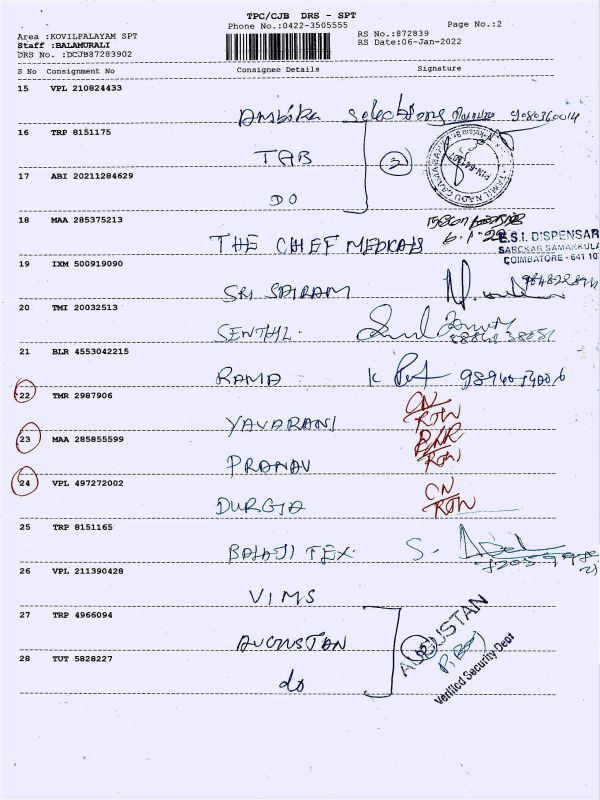 TPC/CJB DRS - SPT
Phone No.:0422-3505555
Page No.:2
Area :KOVILPALAYAM SPT
RS No.:872839
Staff :BALAMURALI
RS Date:06-Jan-2022
DRS No. :DCJB87283902
S No Consignment No Consignee Details Signature
15 VPL 210824433
Ambika Selections 9080360014
16 TRP 8151175
TAB
2
17 ABI 20211284629
DO
18 MAA 285375213
THE CHIEF MEDICALS
6.1.22
E.S.I. DISPENSAR
SARCKAR SAMAKKULA
COIMBATORE - 641 107
19 IXM 500919090
SRI SAIRAM
20 TMI 20032513
SENTHIL.
21 BLR 4553042215
RAMA K
22 TMR 2987906
YAVARANI
23 MAA 285855599
PRANAV
24 VPL 497272002
DURGIA
25 TRP 8151165
BALAJI TEX. S.
26 VPL 211390428
VIMS
27 TRP 4966094
AUGUSTAN
AUGUSTAN
28 TUT 5828227
do
Verified Security Dept